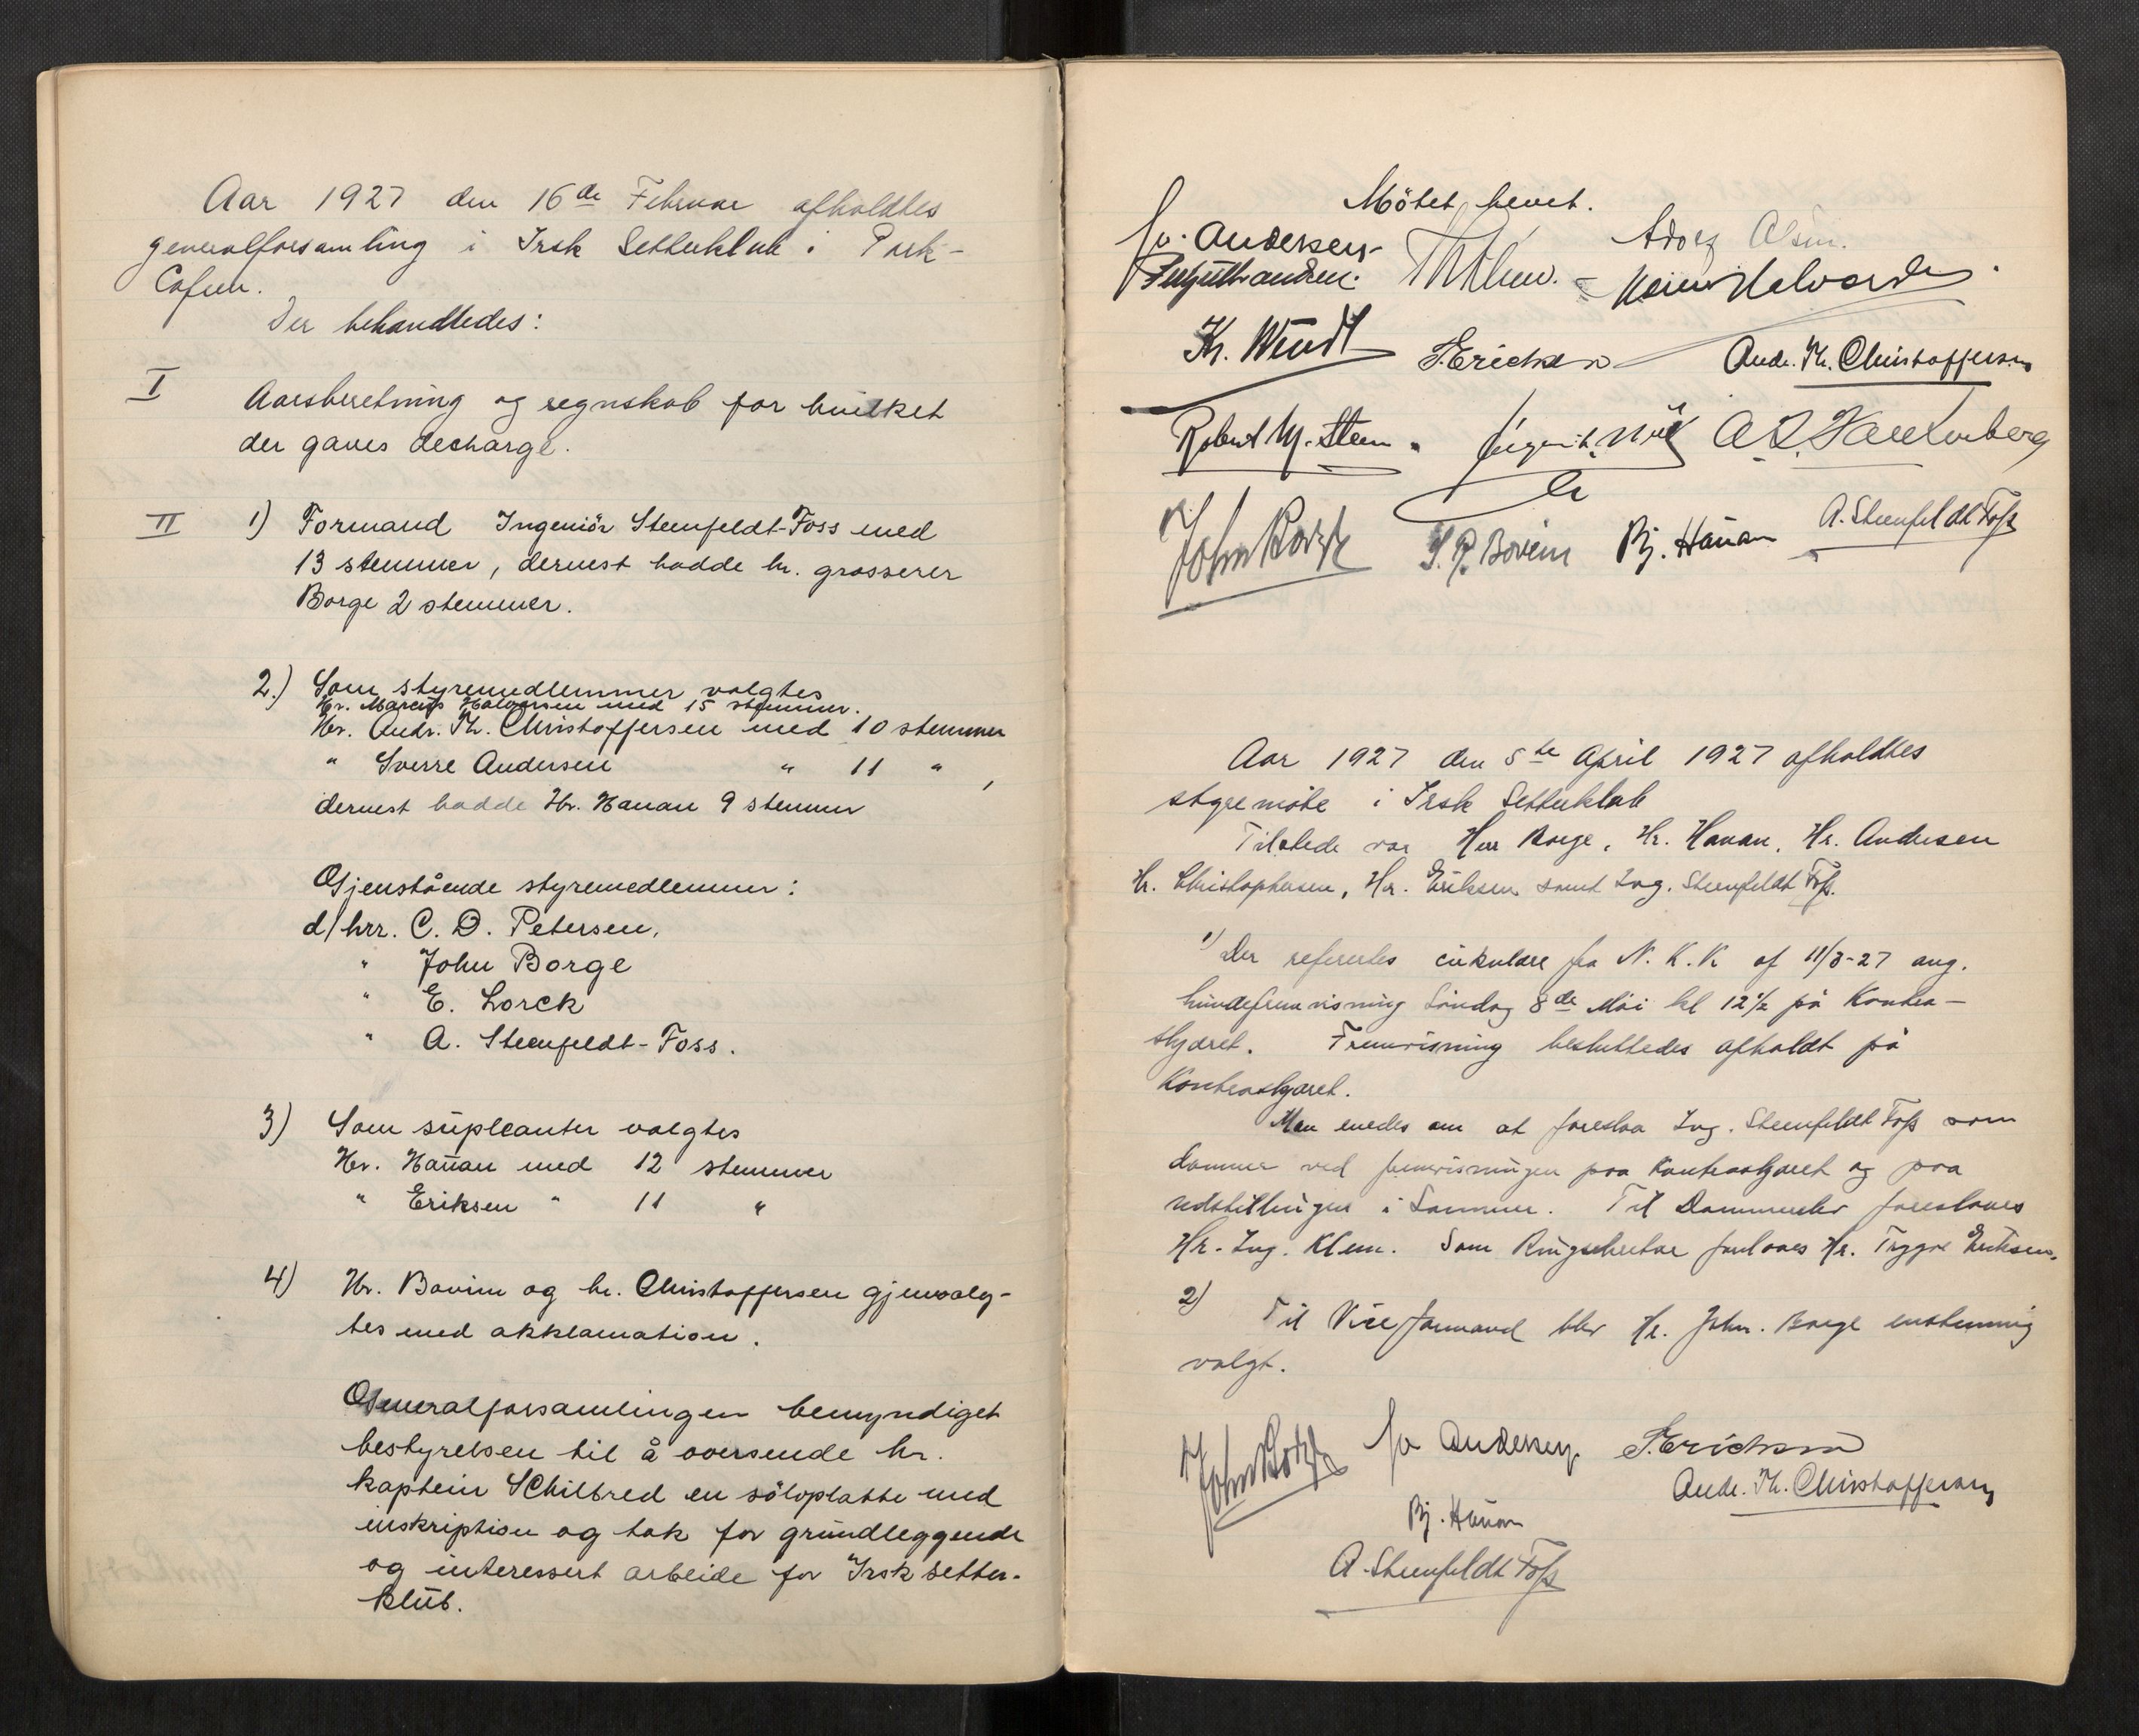 Aar 1927 den 16de Februar afholdtes
generalforsamling i Irsk Setterklub i Park-
Cafeen.
Der behandledes:
I Aarsberetning og regnskab for hvilket
der gaves decharge.
II 1) Formand Ingeniör Steenfeldt-Foss med
13 stemmer, dernest hadde hr. grosserer
Borge 2 stemmer.
2.) Som styremedlemmer valgtes
Hr. Marcus Halvorsen med 15 stemmer.
Hr. Andr. Th. Christoffersen med 10 stemmer
" Sverre Andersen " 11 " ,
dernest hadde Hr. Hanan 9 stemmer
Gjenstående styremedlemmer:
d/hrr. C. D. Petersen,
" John Borge
" E. Lorck
" A. Steenfeldt-Foss.
3) Som supleanter valgtes
Hr. Hanan med 12 stemmer
" Eriksen " 11 "
4) Hr. Bovim og hr. Christoffersen gjenvalg-
tes med akklamation.
Generalforsamlingen bemyndiget
bestyrelsen til å oversende hr.
kaptein Schilbred en sölvplatte med
inskription og tak for grundleggende
og interessert arbeide for Irsk Setter-
klub.
Mötet hevet.
Sv. Andersen Adolf Olsen.
Halvorsen
Kr. Wendt S. Ericksen Andr. Th. Christoffersen
Robert M. Steen
John Borge S. P. Bovim Bj. Hanan A. Steenfeldt Foss
Aar 1927 den 5te April 1927 afholdtes
styremöte i Irsk Setterklub
Tilstede var Herr Borge, Hr. Hanan, Hr. Andersen
Hr. Christophersen, Hr. Eriksen samt Ing. Steenfeldt Foss.
1) Der refereertes cirkulære fra N.K.K af 11/3-27 ang.
hundefremvisning Söndag 8de Mai kl 12 1/2 på Kontra-
skjæret. Fremvisning besluttedes afholdt på
Kontraskjæret.
Man enedes om at foreslaa Ing. Steenfeldt Foss som
dommer ved fremvisningen paa Kontraskjæret og paa
udstillingen i Sommer. Til Dommerelev foreslaaes
Hr. Ing. Klem. Som Ringsekretær foreslaaes Hr. Trygve Eriksen.
2) Til Viceformand blev Hr. John. Borge enstemmig
valgt.
John Borge Sv Andersen S. Ericksen
Andr. Th. Christoffersen
Bj. Hanan
A. Steenfeldt Foss